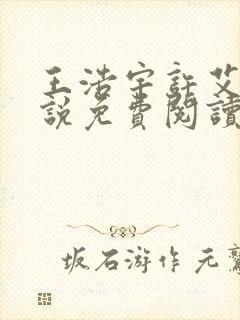 王浩宇許艾
說免費閱讀
坂石游作 元